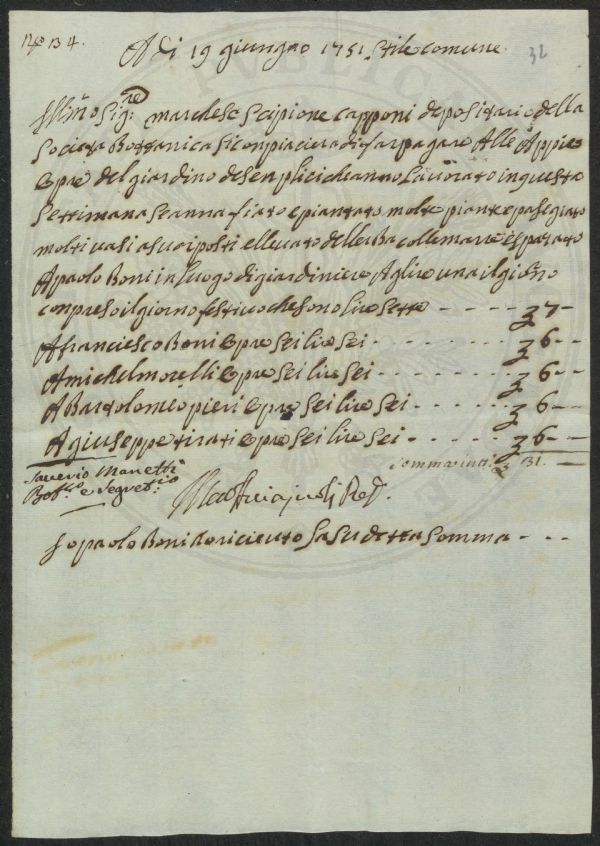 No 134.
A di 19 giungno 1751 stile comune.
32
Illmo Sigre marchese scipione capponi depositario della
Societa Bottanica si conpiacera di far pagare Alle Appie
Opre del giardino de senplici che anno Lavorato in questa
Settimana Se anna fiato e piantato molte piante e pasegiato
molti vasi a suoi posti ellevato delle Ba colle marre e sparato
A paolo Boni in luogo di giardiniere A lire una il giorno
conpreso il giorno festivo che sono lire Sette - - - - - 7 -
A franciesco Boni Opre sei lire sei - - - - - - 6 - -
A michel morelli Opre sei lire sei - - - - - - 6 - -
A Bartolomeo pieri Opre sei lire sei - - - - - - 6 - -
A giuseppe tirati Opre sei lire sei - - - - - - 6 - -
Sommarina: 31. -
Saverio Manetti
Botco e Segretio
Io paolo Boni Ao riceuto la su detta somma - - - -
PVBLICA